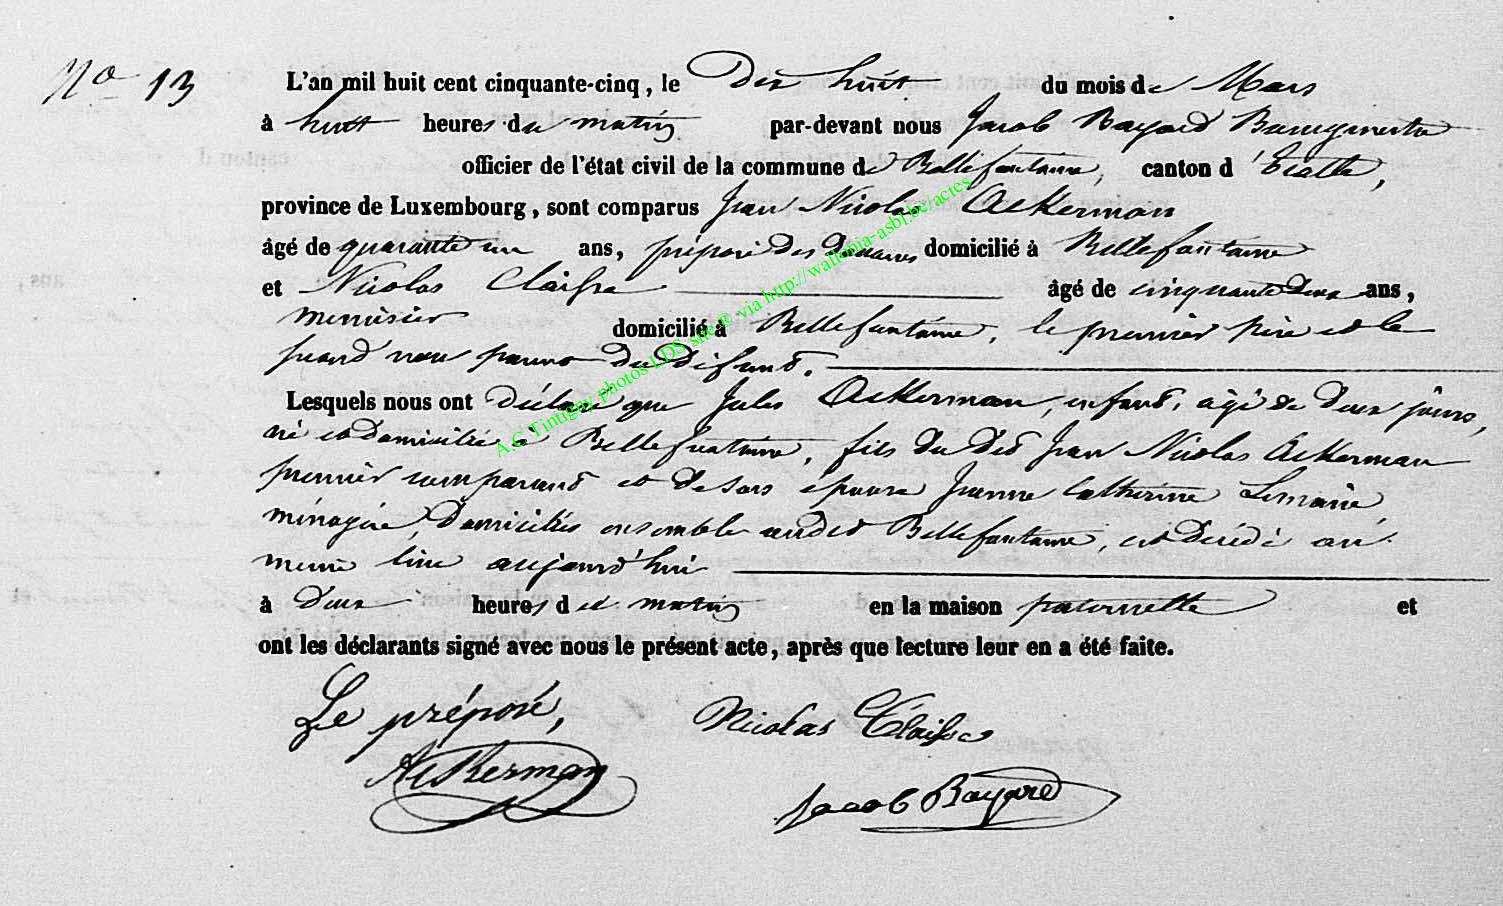 No 13
L'an mil huit cent cinquante-cinq, le Dix huit du mois de Mars
à huit heures du matin par-devant nous Jacob Bayard Bourgmestre
officier de l'état civil de la commune de Bellefontaine, canton d'Etalle,
province de Luxembourg, sont comparus Jean Nicolas Ackerman
âgé de quarante un ans, préposé des Douanes domicilié à Bellefontaine
et Nicolas Claisse âgé de cinquante deux ans,
menuisier domicilié à Bellefontaine, le premier père et le
second non parent du défunt.
Lesquels nous ont Déclaré que Jules Ackerman, enfant, âgé de deux jours,
né et domicilié à Bellefontaine, fils du dit Jean Nicolas Ackerman
premier comparant et de son épouse Jeanne Catherine Lemaire,
ménagère, domiciliés ensemble audit Bellefontaine, est décédé au
même lieu aujourd'hui
à Deux heures du matin en la maison paternelle et
ont les déclarants signé avec nous le présent acte, après que lecture leur en a été faite.
Le préposé, Nicolas Claisse
Ackerman
Jacob Bayard
A.C Tintigny photos LDS site® via http://wallonia-asbl.be/actes